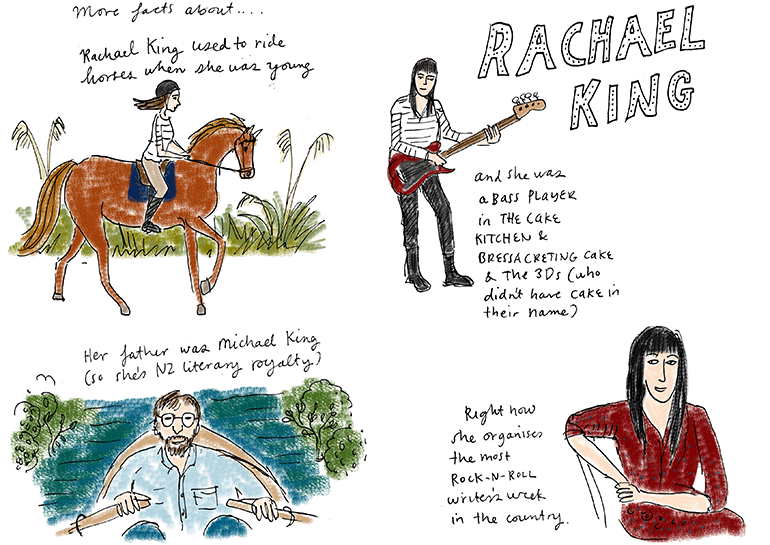 More facts about....
Rachael King used to ride
horses when she was young
RACHAEL
KING
and she was
a BASS PLAYER
in THE CAKE
KITCHEN &
BRESSACRETING CAKE
& THE 3Ds (who
didn't have CAKE in
their name)
Her father was Michael King
(so she's NZ literary royalty)
Right now
she organises
the most
ROCK-N-ROLL
writer's week
in the country.